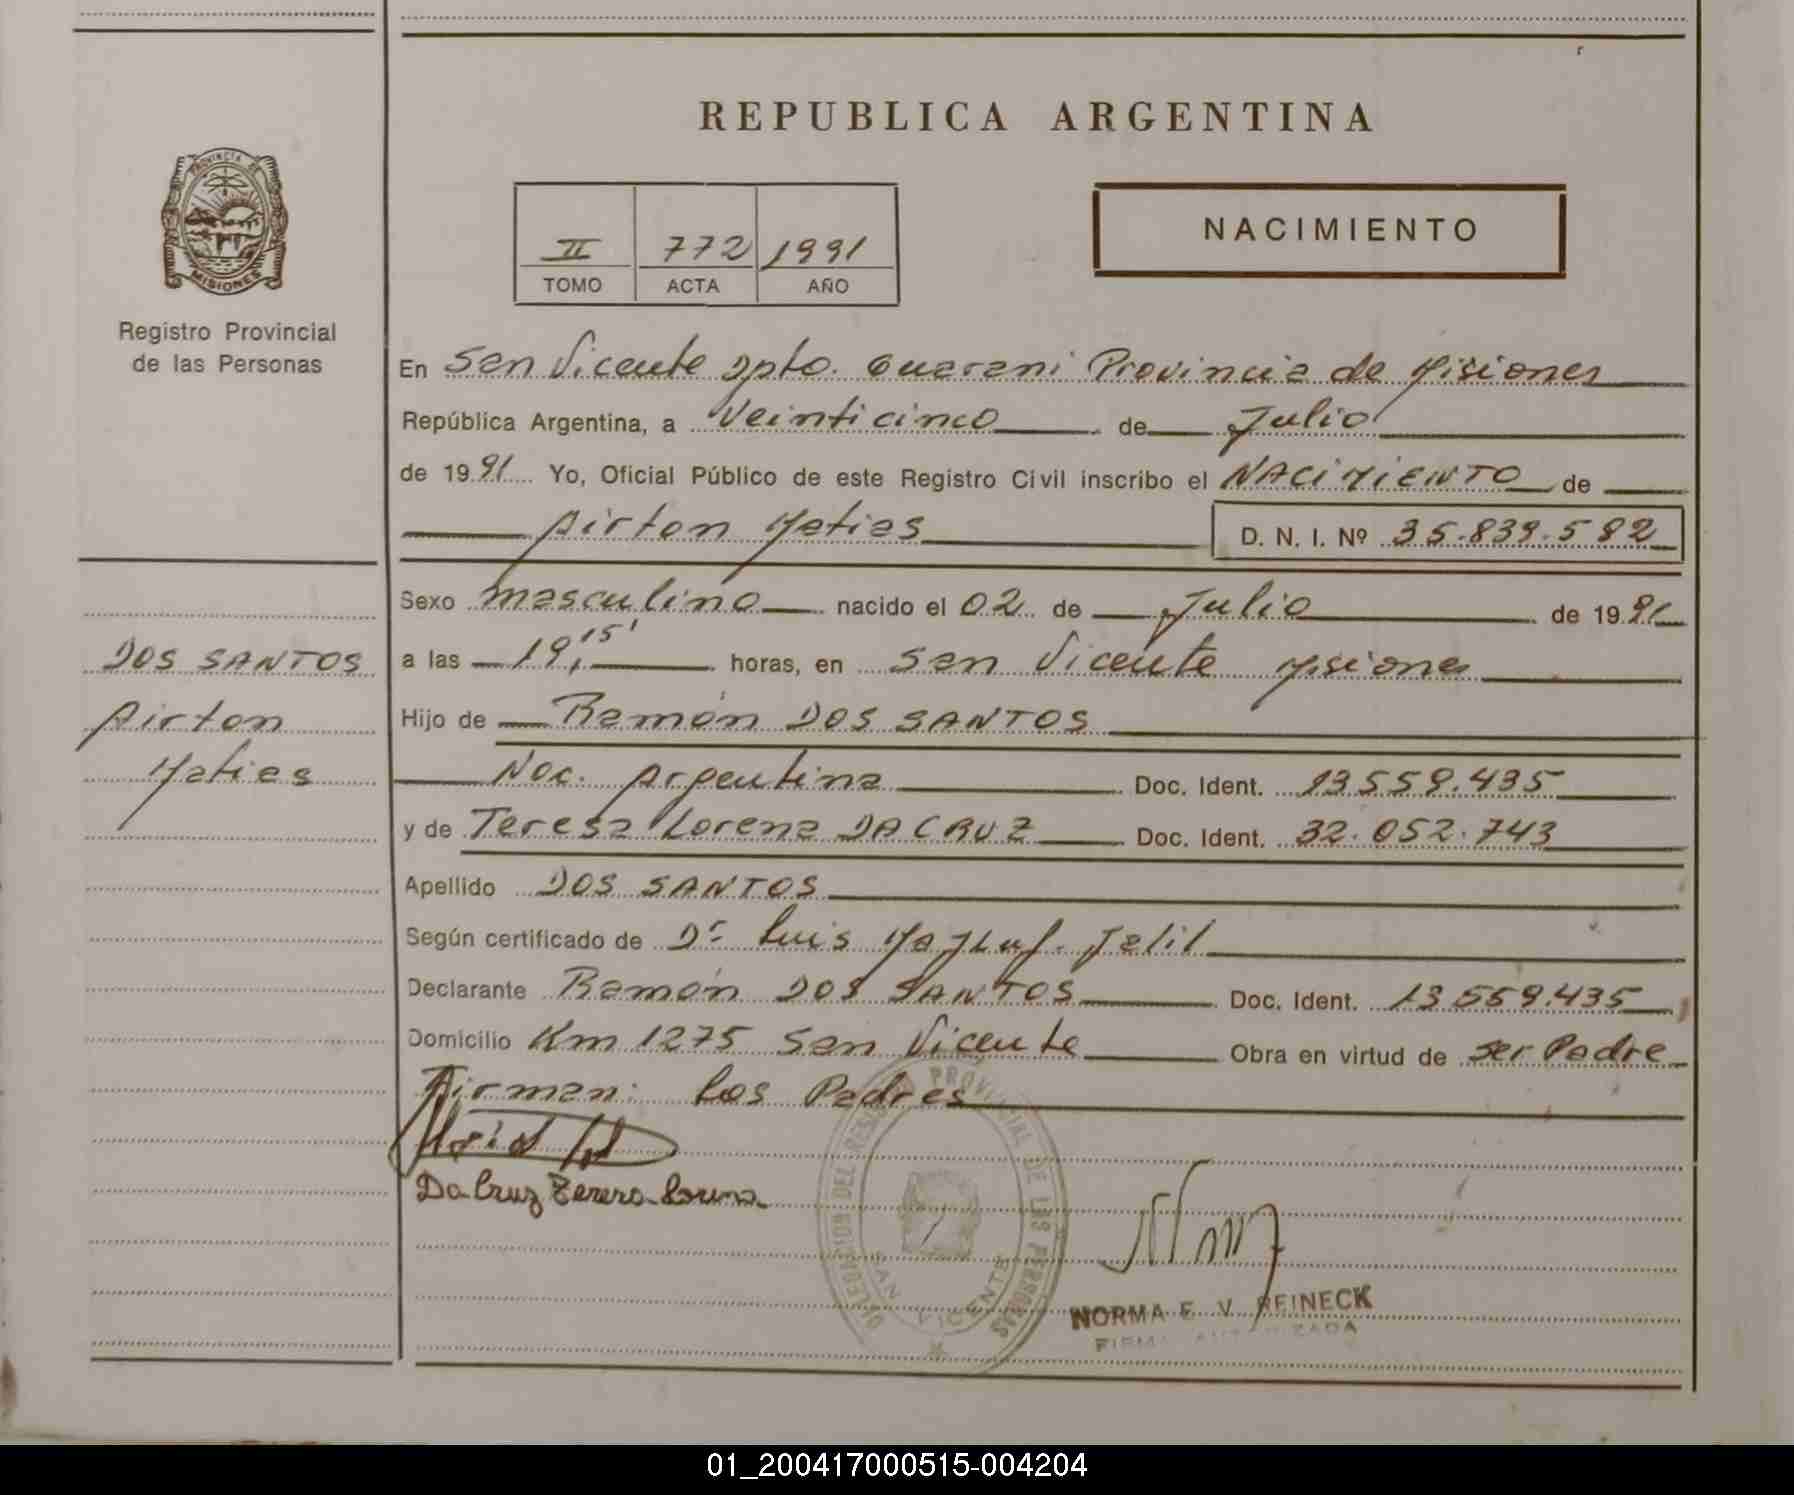 REPUBLICA ARGENTINA
PROVINCIA DE
MISIONES
Registro Provincial
de las Personas
II 772 1991
TOMO ACTA AÑO
NACIMIENTO
En San Vicente Dpto. Guarani Provincia de Misiones
República Argentina, a Veinticinco de Julio
de 1991 Yo, Oficial Público de este Registro Civil inscribo el NACIMIENTO de
Airton Matias D. N. I. Nº 35.839.582
Sexo masculino nacido el 02 de Julio de 1991
a las 19,15' horas, en San Vicente Misiones
Hijo de Ramón DOS SANTOS
Nac. Argentina Doc. Ident. 13.559.435
y de Teresa Lorena DA CRUZ Doc. Ident. 32.052.743
Apellido DOS SANTOS
Según certificado de Dr Luis Jalil
Declarante Ramón DOS SANTOS Doc. Ident. 13.559.435
Domicilio Km 1275 San Vicente Obra en virtud de Ser Padre
Firman: Los Padres
Da Cruz Teresa Lorena
DELEGACION DEL REGISTRO PROVINCIAL DE LAS PERSONAS
SAN VICENTE
NORMA E. V. REINECK
FIRMA AUTORIZADA
DOS SANTOS
Airton
Matias
01_200417000515-004204